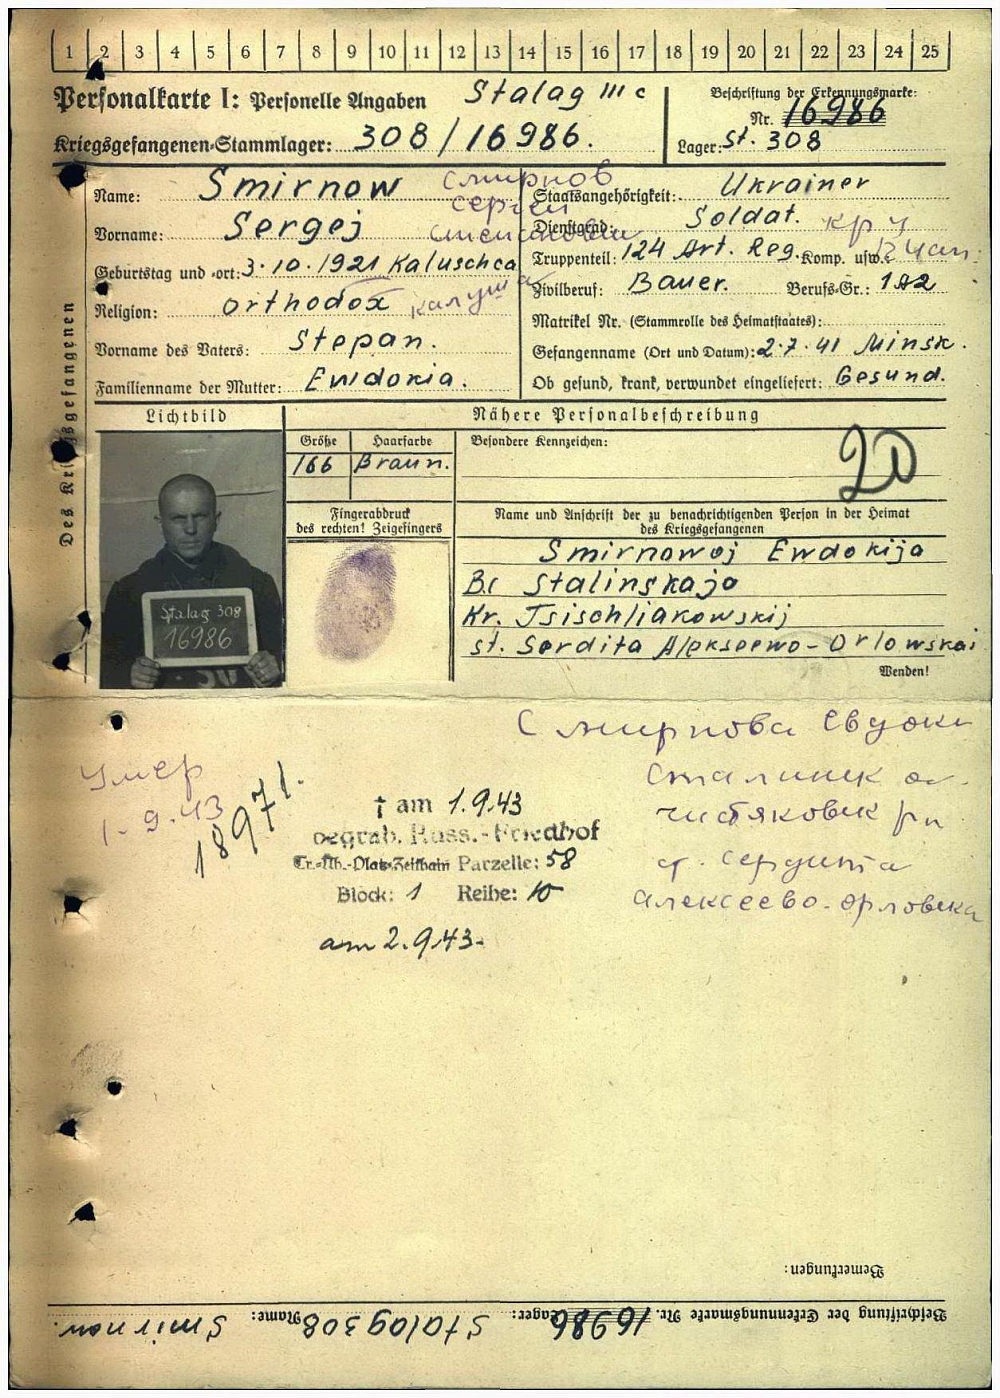 1 2 3 4 5 6 7 8 9 10 11 12 13 14 15 16 17 18 19 20 21 22 23 24 25
Personalkarte I: Personelle Angaben Stalag III c
Beschriftung der Erkennungsmarke:
Nr. 16986
Kriegsgefangenen-Stammlager: 308/16986.
Lager: St. 308
Des Kriegsgefangenen
Name: Smirnow Смирнов
Vorname: Sergej Сергей
Степанович
Geburtstag und -ort: 3.10.1921 Kaluschca
Religion: orthodox Калуш
Vorname des Vaters: Stepan.
Familienname der Mutter: Ewdokia.
Staatsangehörigkeit: Ukrainer
Dienstgrad: Soldat. кр
Truppenteil: 124 Art. Reg. Komp. usw.:
Zivilberuf: Bauer. Berufs-Gr.: 1A2
Matrikel Nr. (Stammrolle des Heimatstaates):
Gefangenname (Ort und Datum): 2.7.41 Minsk.
Ob gesund, krank, verwundet eingeliefert: Gesund.
Lichtbild
Nähere Personalbeschreibung
Größe Haarfarbe Besondere Kennzeichen:
166 Braun.
20
Stalag 308
16986
Fingerabdruck
des rechten! Zeigefingers
Name und Anschrift der zu benachrichtigenden Person in der Heimat
des Kriegsgefangenen
Smirnowoj Ewdokija
Stalinskaja
Kr. Tsischliakowskij
st. Serdita Alekseewo-Orlowskai
Wenden!
Смирнова Евдоки
Сталинск
чистяковск рн
ст. Сердита
Алексеево-орловска
Умер
1.9.43
18971.
† am 1.9.43
begrab. Russ.-Friedhof
Tr.-Üb.-Platz-Zeithain Parzelle: 58
Block: 1 Reihe: 10
am 2.9.43-
Bemerkungen:
Beschriftung der Erkennungsmarke Nr. 16986 Lager: Stalag 308 Name: Smirnow.